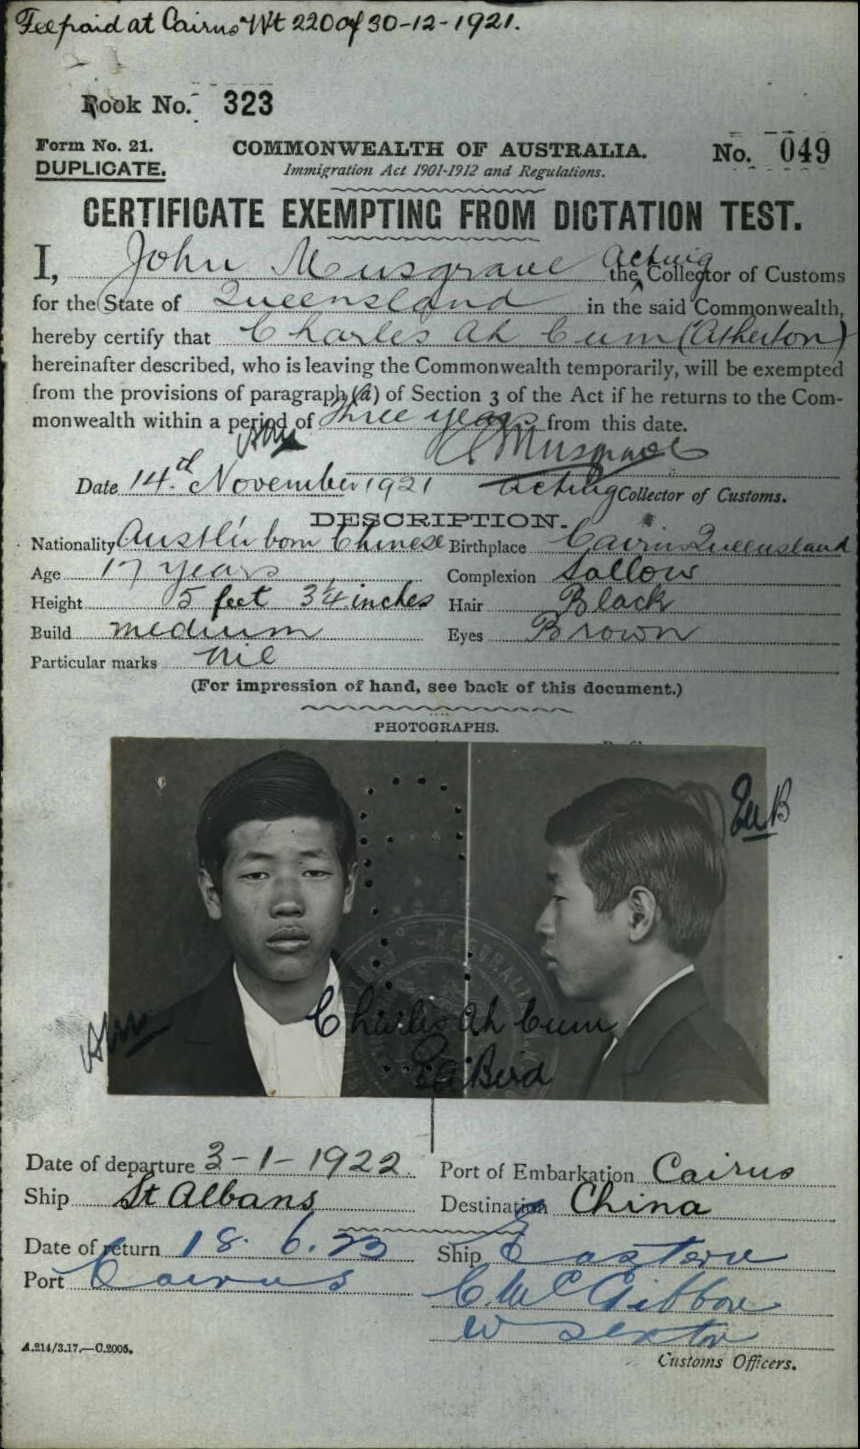 Fee paid at Cairns Wt 220 of 30-12-1921.
Book No. 323
Form No. 21. COMMONWEALTH OF AUSTRALIA. No. 049
DUPLICATE. Immigration Act 1901-1912 and Regulations.
CERTIFICATE EXEMPTING FROM DICTATION TEST.
I, John Musgrave the Acting Collector of Customs
for the State of Queensland in the said Commonwealth,
hereby certify that Charles Ah Cum (Atherton)
hereinafter described, who is leaving the Commonwealth temporarily, will be exempted
from the provisions of paragraph (a) of Section 3 of the Act if he returns to the Com-
monwealth within a period of three years from this date.
Musgrave
Date 14th November 1921 Acting Collector of Customs.
DESCRIPTION.
Nationality Austln born Chinese Birthplace Cairns Queensland
Age 17 years Complexion Sallow
Height 5 feet 3¼ inches Hair Black
Build medium Eyes Brown
Particular marks nil
(For impression of hand, see back of this document.)
PHOTOGRAPHS.
Charles Ah Cum
Bird
Date of departure 3-1-1922 Port of Embarkation Cairns
Ship St Albans Destination China
Date of return 18.6.23 Ship Eastern
Port Cairns C. McGibbon
W Sexton
A.214/3.17.—C.2005. Customs Officers.